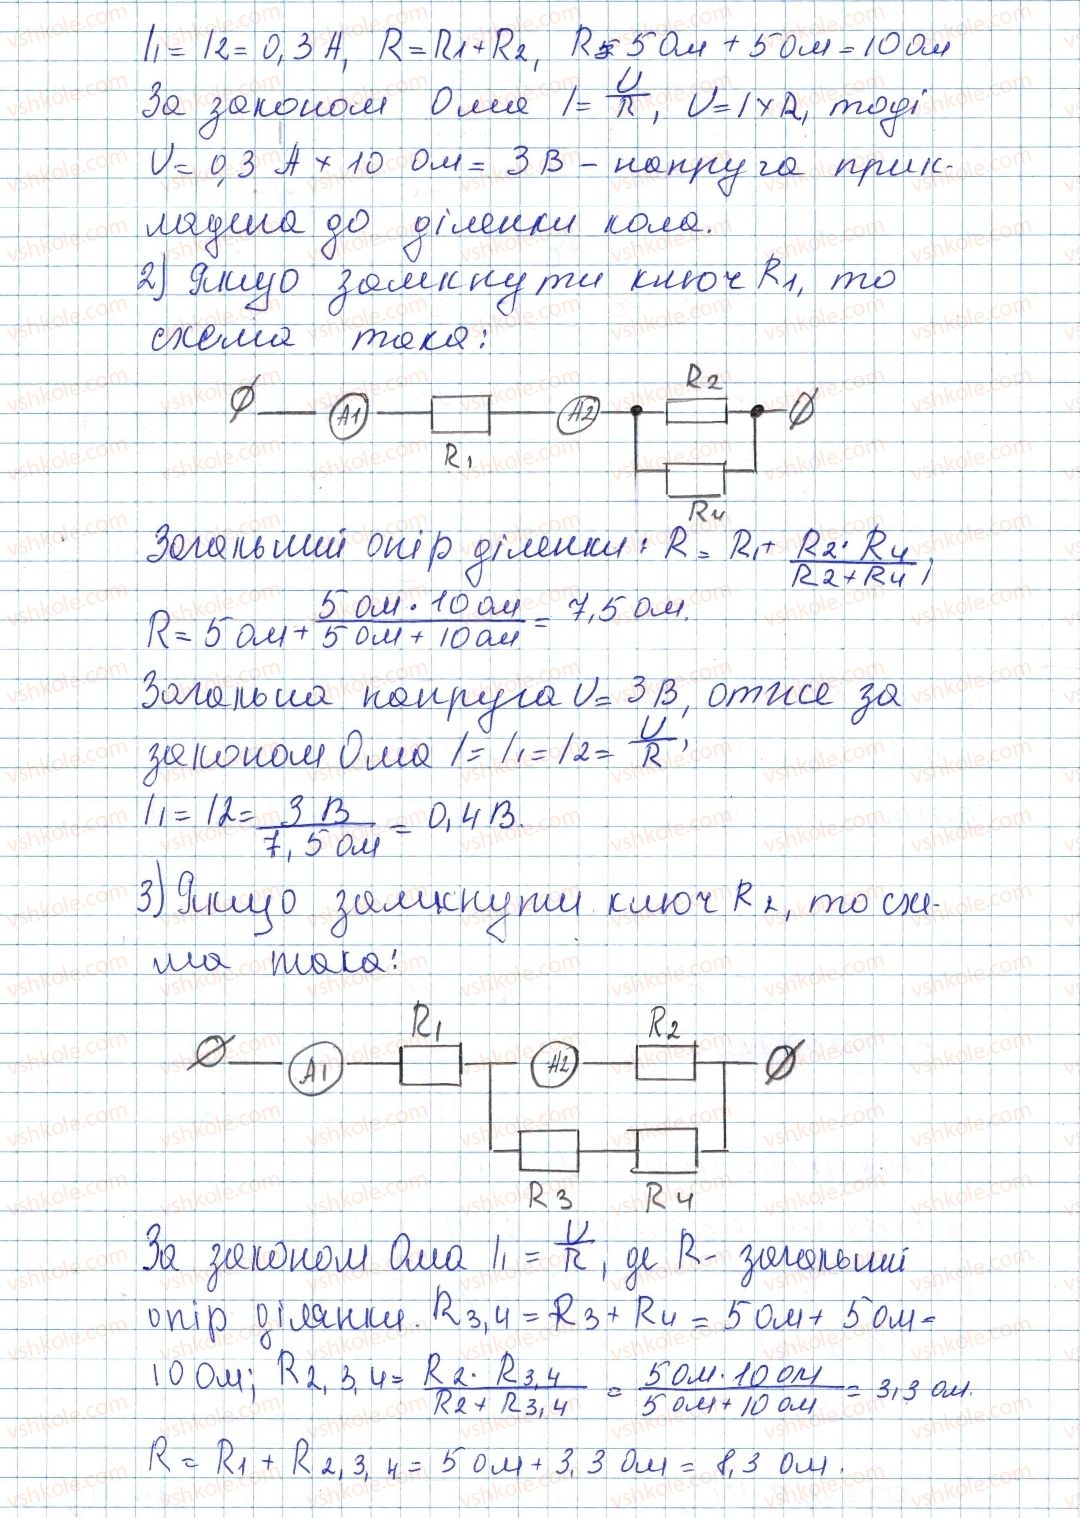 I₁ = I2 = 0,3 А, R = R1 + R2, R = 5 Ом + 5 Ом = 10 Ом
За законом Ома I = U/R, U = I × R, тоді
U = 0,3 А × 10 Ом = 3 В – напруга прик-
ладена до діленки кола.
2) Якщо замкнути ключ R1, то
схема така:
R2
A1 A2
R1
R4
Загальний опір діленки: R = R1 + R2 · R4 / R2 + R4;
R = 5 Ом + 5 Ом · 10 Ом / 5 Ом + 10 Ом = 7,5 Ом.
Загальна напруга U = 3 В, отже за
законом Ома I = I₁ = I2 = U/R;
I₁ = I2 = 3 В / 7,5 Ом = 0,4 В.
3) Якщо замкнути ключ R2, то схе-
ма така:
R1 R2
A1 A2
R3 R4
За законом Ома I₁ = U/R, де R – загальний
опір ділянки. R3,4 = R3 + R4 = 5 Ом + 5 Ом =
10 Ом; R2,3,4 = R2 · R3,4 / R2 + R3,4 = 5 Ом · 10 Ом / 5 Ом + 10 Ом = 3,3 Ом.
R = R1 + R2,3,4 = 5 Ом + 3,3 Ом = 8,3 Ом.